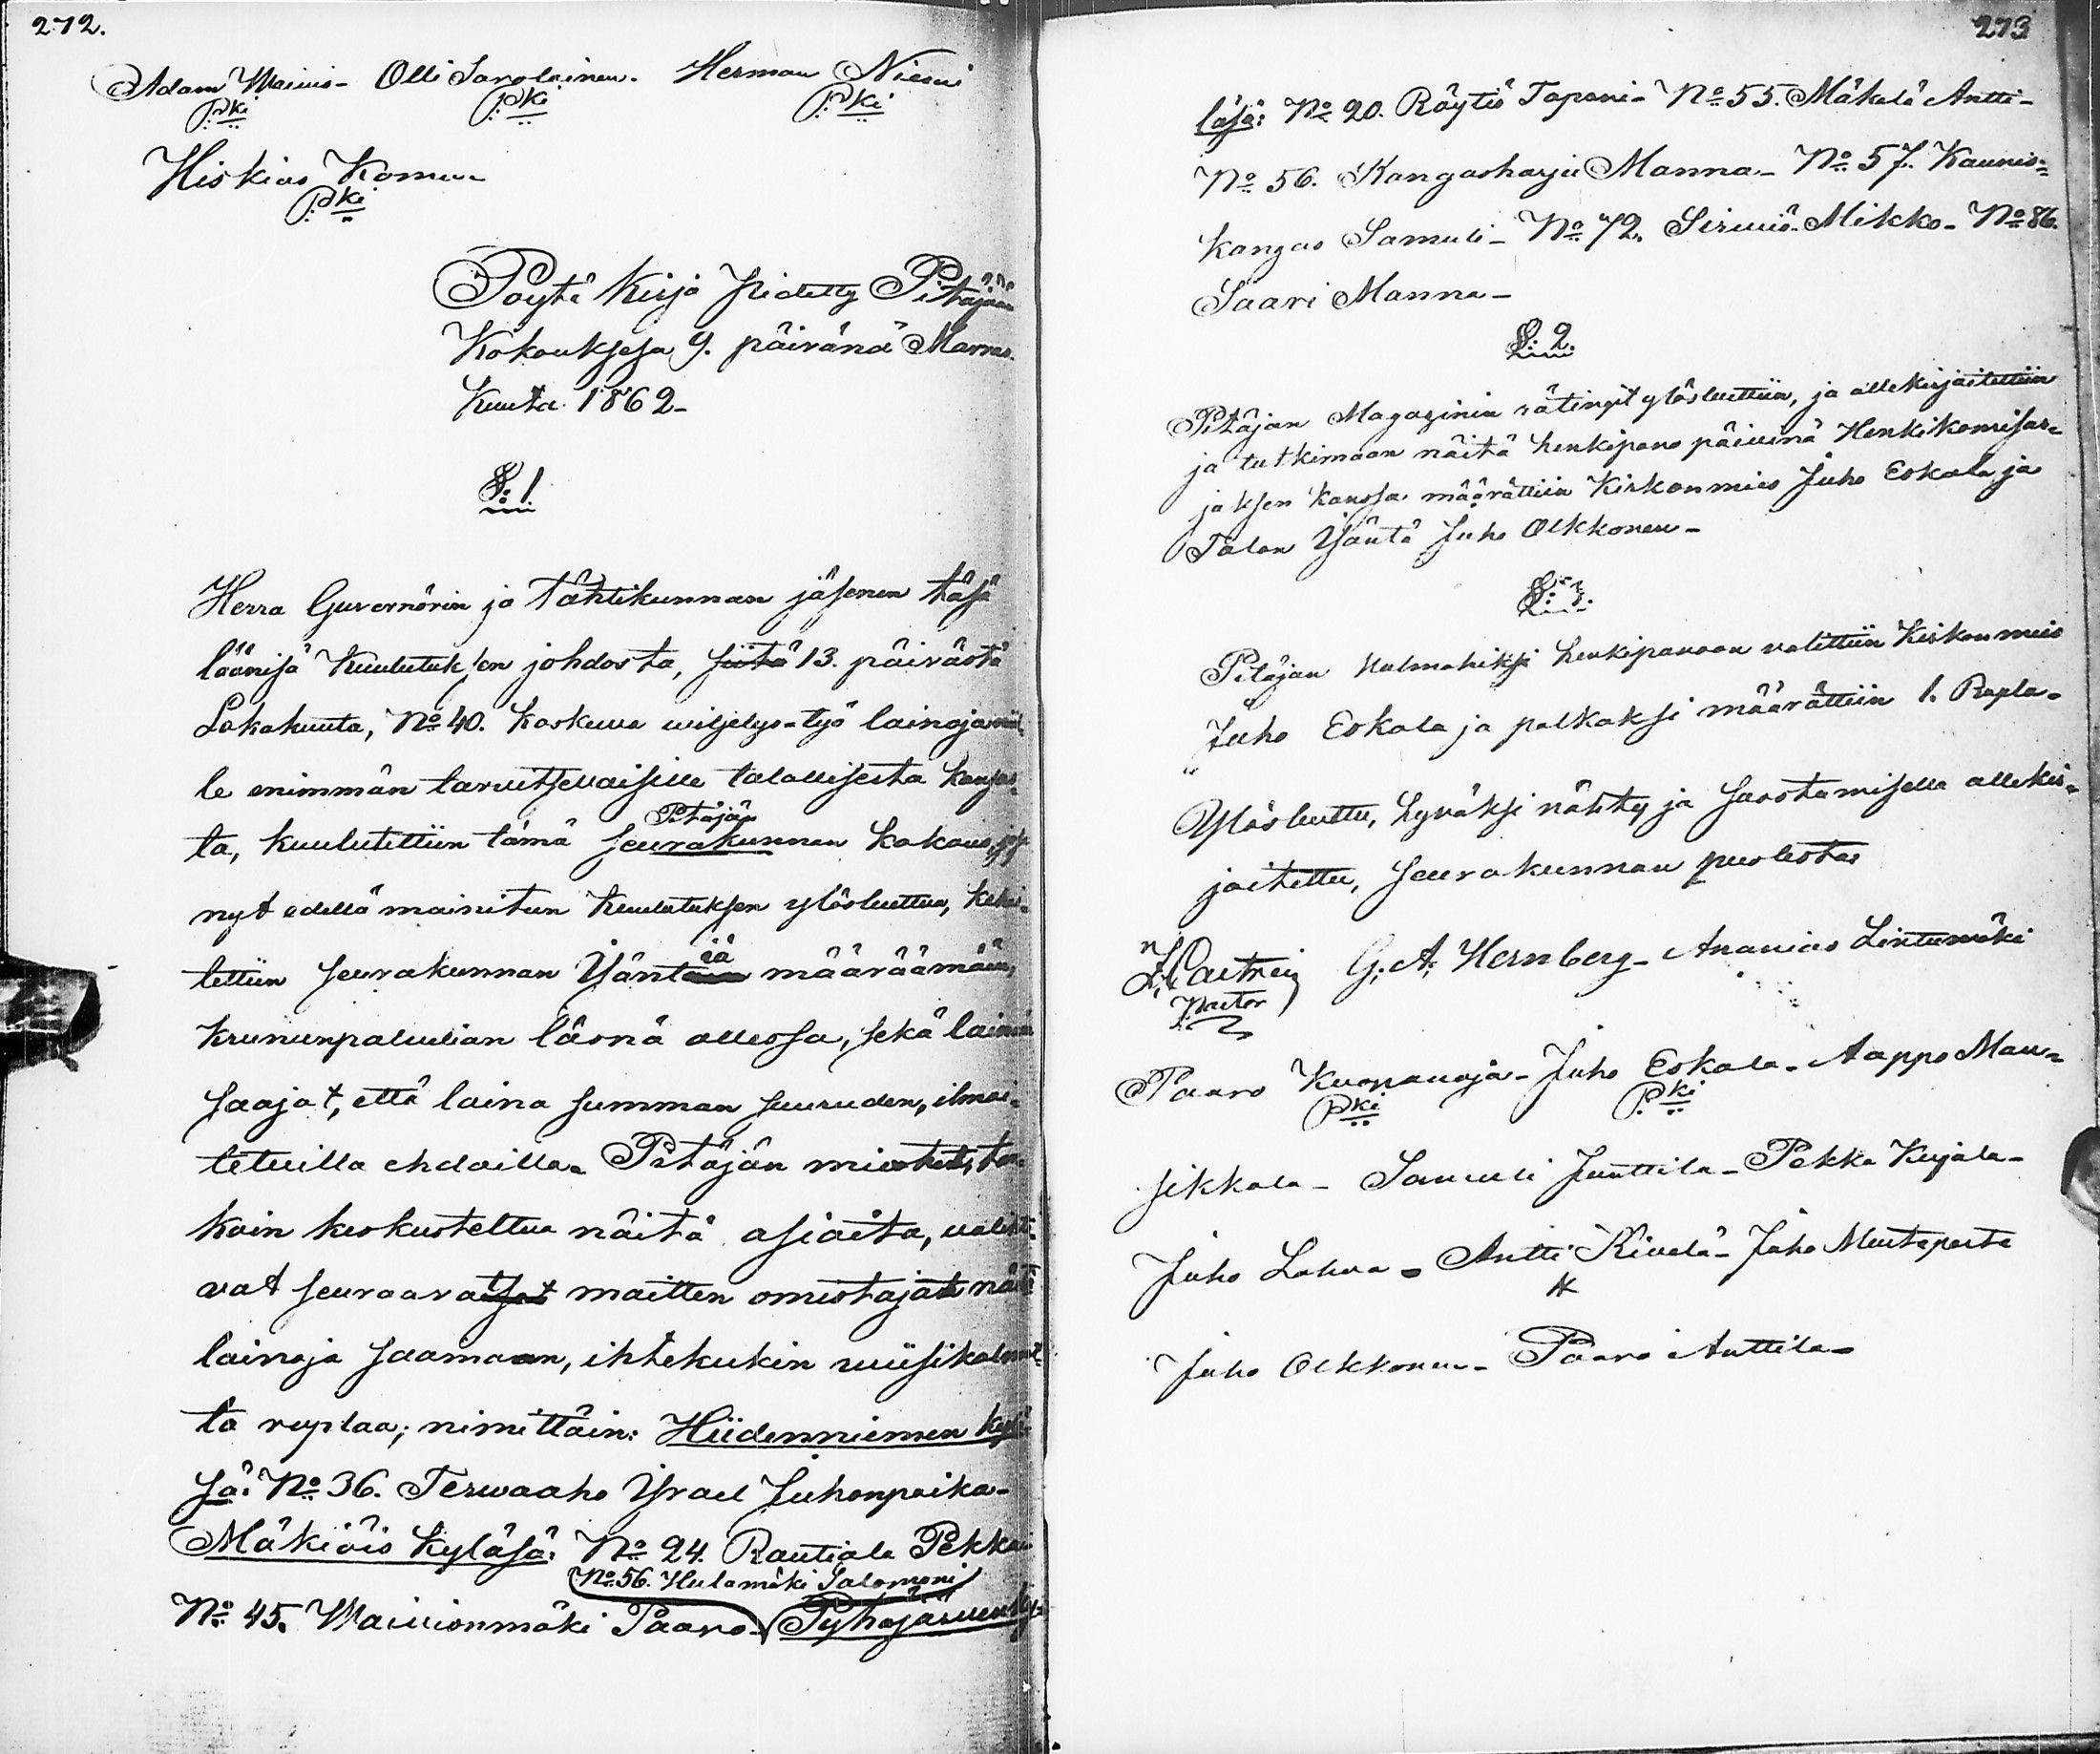 272.
Adam Wainio- Olli Savolainen. Herman Niemi
P:ki P:ki P:ki
Hiskias Komu-
P:ki
Pöytä Kirja pidetty Pitäjään
Kokouksesa 9. päivänä Marras-
Kuuta 1862-
§: 1
Herra Guvernörin ja tähtikunnan jäsenen täsä
läänisä Kuulutuksen johdosta, siitä 13. päivästä
Lokakuuta, No 40. koskeva wiljelys-työ lainoja niil-
le enimmän tarvitsevaisille talollisesta kansas-
ta, kuulutettiin tämä seurakunnan kokous, jos
Pitäjän
nyt edellä mainitun Kuulutuksen ylösluettua, kehoi-
tettiin seurakunnan Ysäntiä määräämään,
Krununpalvelian läsnä ollessa, sekä lainan
saajat, että laina summan suuruden, ilmoi-
tetuilla ehdoilla. Pitäjän miehet, tar-
koin keskusteltua näitä asioita, valitsi-
vat seuraavat maitten omistajat näitä
lainoja saamaan, ihtekukin wiisikolmat-
ta ruplaa; nimittäin: Hiidenniemen kylä-
sä: No 36. Terwaaho Ysrael Juhonpoika-
Mäkiöis kyläsä: No 24. Rautiala Pekka
No 56. Hulamäki Salomoni
No 45. Wainionmäki Paavo- Pyhäjärven ky-
273
läsä: No 20. Röytiö Tapani- No 55. Mäkelä Antti-
No 56. Kangasharju Manna- No 57. Kaunis-
kangas Samuli- No 72. Sirviö Mikko- No 86.
Saari Manna-
§: 2.
Pitäjan Magaginin rätingit ylösluettiin, ja allekirjoitettiin
ja tutkimaan näitä henkipano päivinä Henkikomisar-
jaksen kanssa määrättiin Kirkonmies Juho Eskola ja
Talon Ysäntä Juho Olkkonen-
§: 3.
Pitäjan walmahiksi henkipanoon valittiin Kirkon mies
Juho Eskola ja palkaksi määrättiin 1. Rupla-
Ylösluettu, hyväksi nähty ja suostumisella allekir-
joitettu, seurakunnan puolesta
Castrén G: A: Hernberg- Ananias Lintumäki
Pastor
Paavo Kuonanoja- Juho Eskola- Aappo Mau-
P:ki P:ki
sikkala- Samuli Junttila- Pekka Kujala-
Juho Lahna- Antti Kivelä- Juho Mustaparta
Juho Olkkonen- Paavo Anttila-